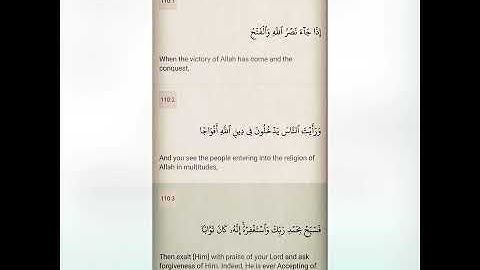 110:1
إِذَا جَآءَ نَصْرُ ٱللَّهِ وَٱلْفَتْحُ
When the victory of Allah has come and the
conquest,
110:2
وَرَأَيْتَ ٱلنَّاسَ يَدْخُلُونَ فِى دِينِ ٱللَّهِ أَفْوَاجًا
And you see the people entering into the religion of
Allah in multitudes,
110:3
فَسَبِّحْ بِحَمْدِ رَبِّكَ وَٱسْتَغْفِرْهُ إِنَّهُۥ كَانَ تَوَّابًۢا
Then exalt [Him] with praise of your Lord and ask
forgiveness of Him. Indeed, He is ever Accepting of